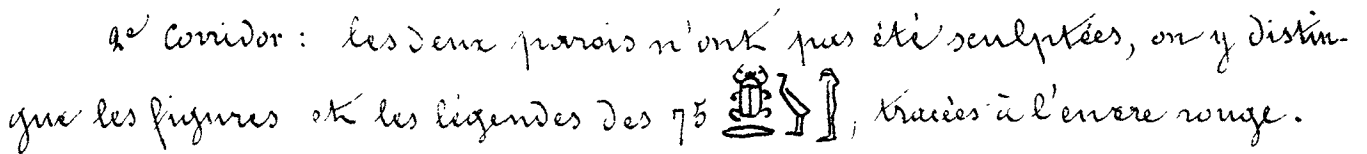 2e Corridor : les deux parois n'ont pas été sculptées, on y distin-
gue les figures et les légendes des 75 𓆣𓂋𓅱𓀾, tracées à l'encre rouge.